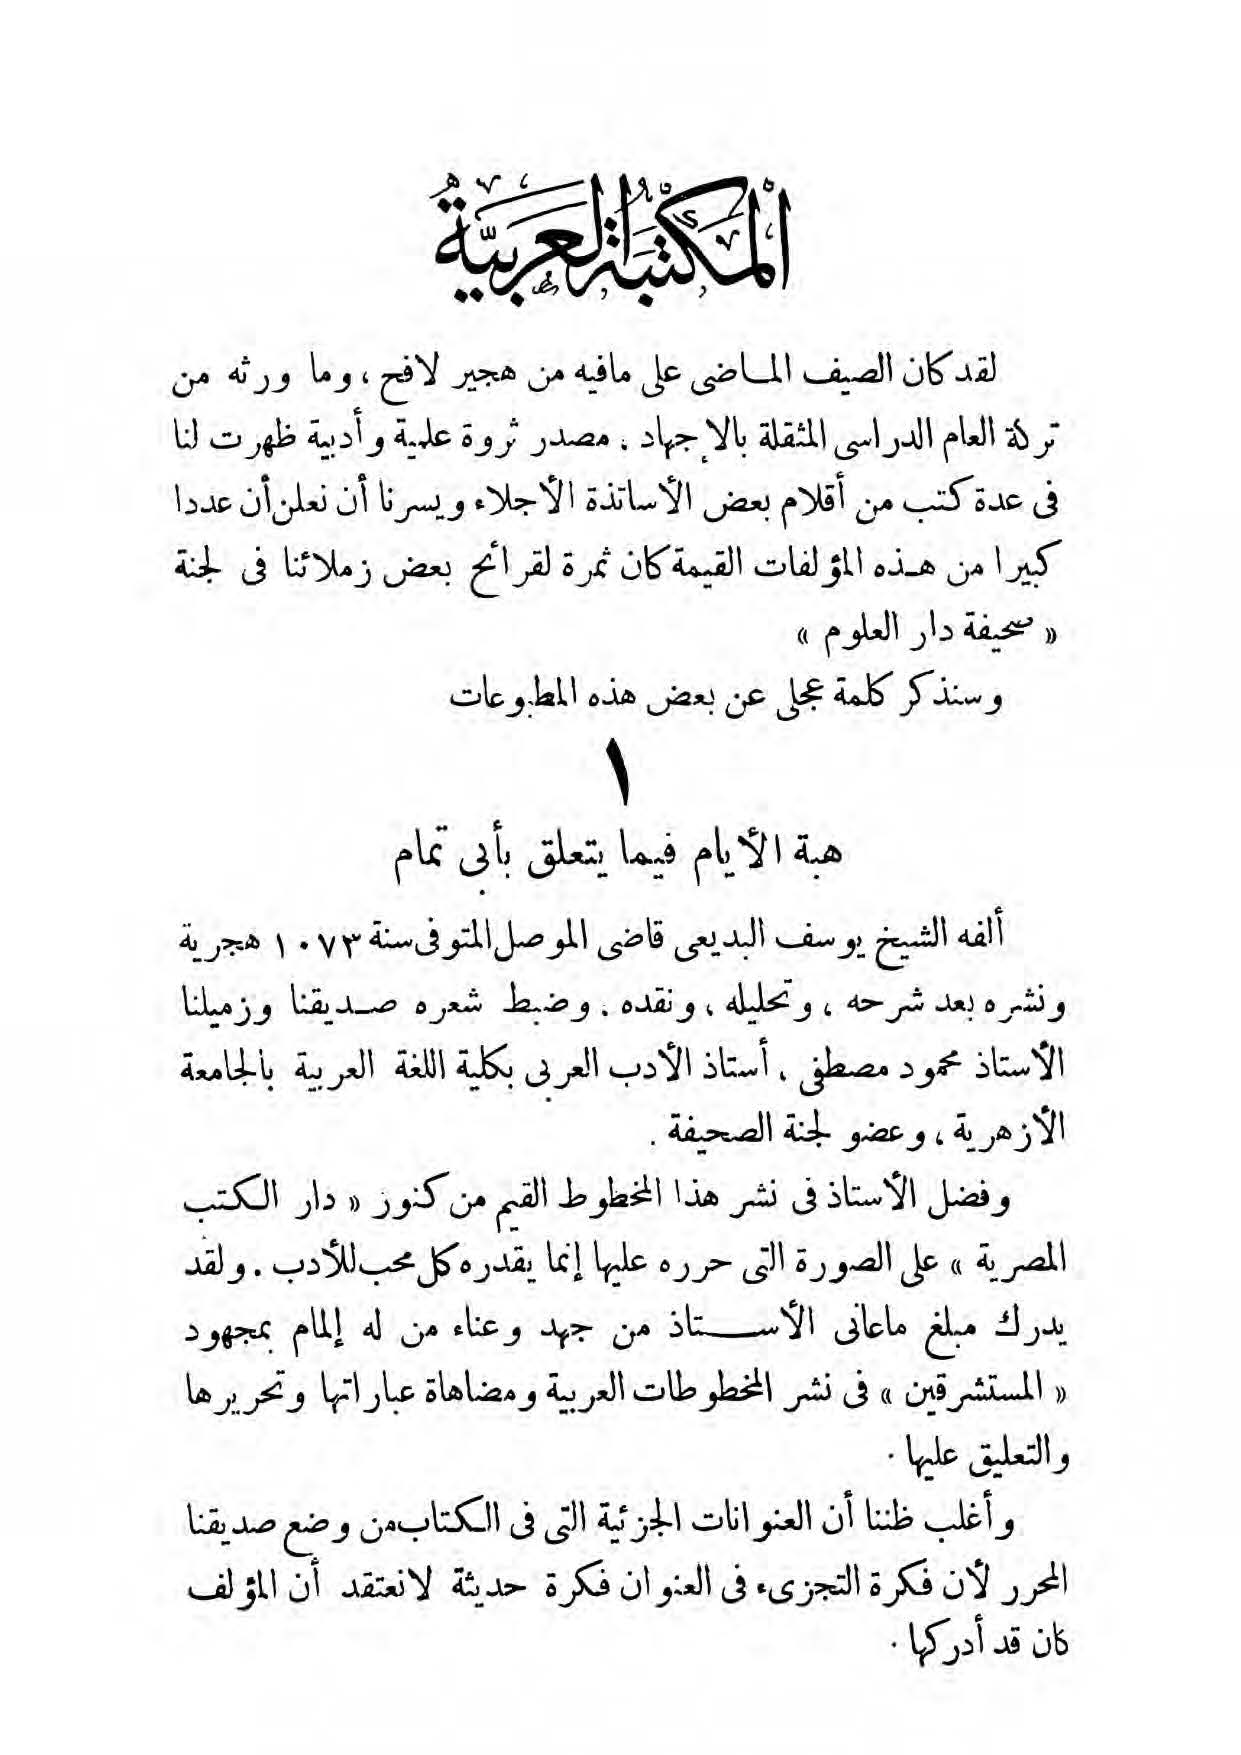 المكتبة العربية
لقد كان الصيف الماضى على مافيه من هجير لافح ، وما ورثه من
تركة العام الدراسى المثقلة بالإجهاد . مصدر ثروة علمية وأدبية ظهرت لنا
فى عدة كتب من أقلام بعض الأساتذة الأجلاء ويسرنا أن نعلن أن عددا
كبيرا من هذه المؤلفات القيمة كان ثمرة لقرائح بعض زملائنا فى لجنة
« صحيفة دار العلوم »
وسنذكر كلمة عجلى عن بعض هذه المطبوعات
١
هبة الأيام فيما يتعلق بأبى تمام
ألفه الشيخ يوسف البديعى قاضى الموصل المتوفى سنة ١٠٧٣ هجرية
ونشره بعد شرحه ، وتحليله ، ونقده . وضبط شعره صديقنا وزميلنا
الأستاذ محمود مصطفى . أستاذ الأدب العربى بكلية اللغة العربية بالجامعة
الأزهرية ، وعضو لجنة الصحيفة .
وفضل الأستاذ فى نشر هذا المخطوط القيم من كنوز « دار الكتب
المصرية » على الصورة التى حرره عليها إنما يقدره كل محب للأدب . ولقد
يدرك مبلغ ماعانى الأستاذ من جهد وعناء من له إلمام بمجهود
« المستشرقين » فى نشر المخطوطات العربية ومضاهاة عباراتها وتحريرها
والتعليق عليها .
وأغلب ظننا أن العنوانات الجزئية التى فى الكتاب من وضع صديقنا
المحرر لأن فكرة التجزىء فى العنوان فكرة حديثة لانعتقد أن المؤلف
كان قد أدركها .